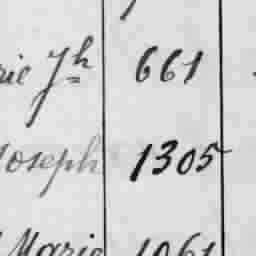 rie Jh 661
Joseph 1305
Marie 1061